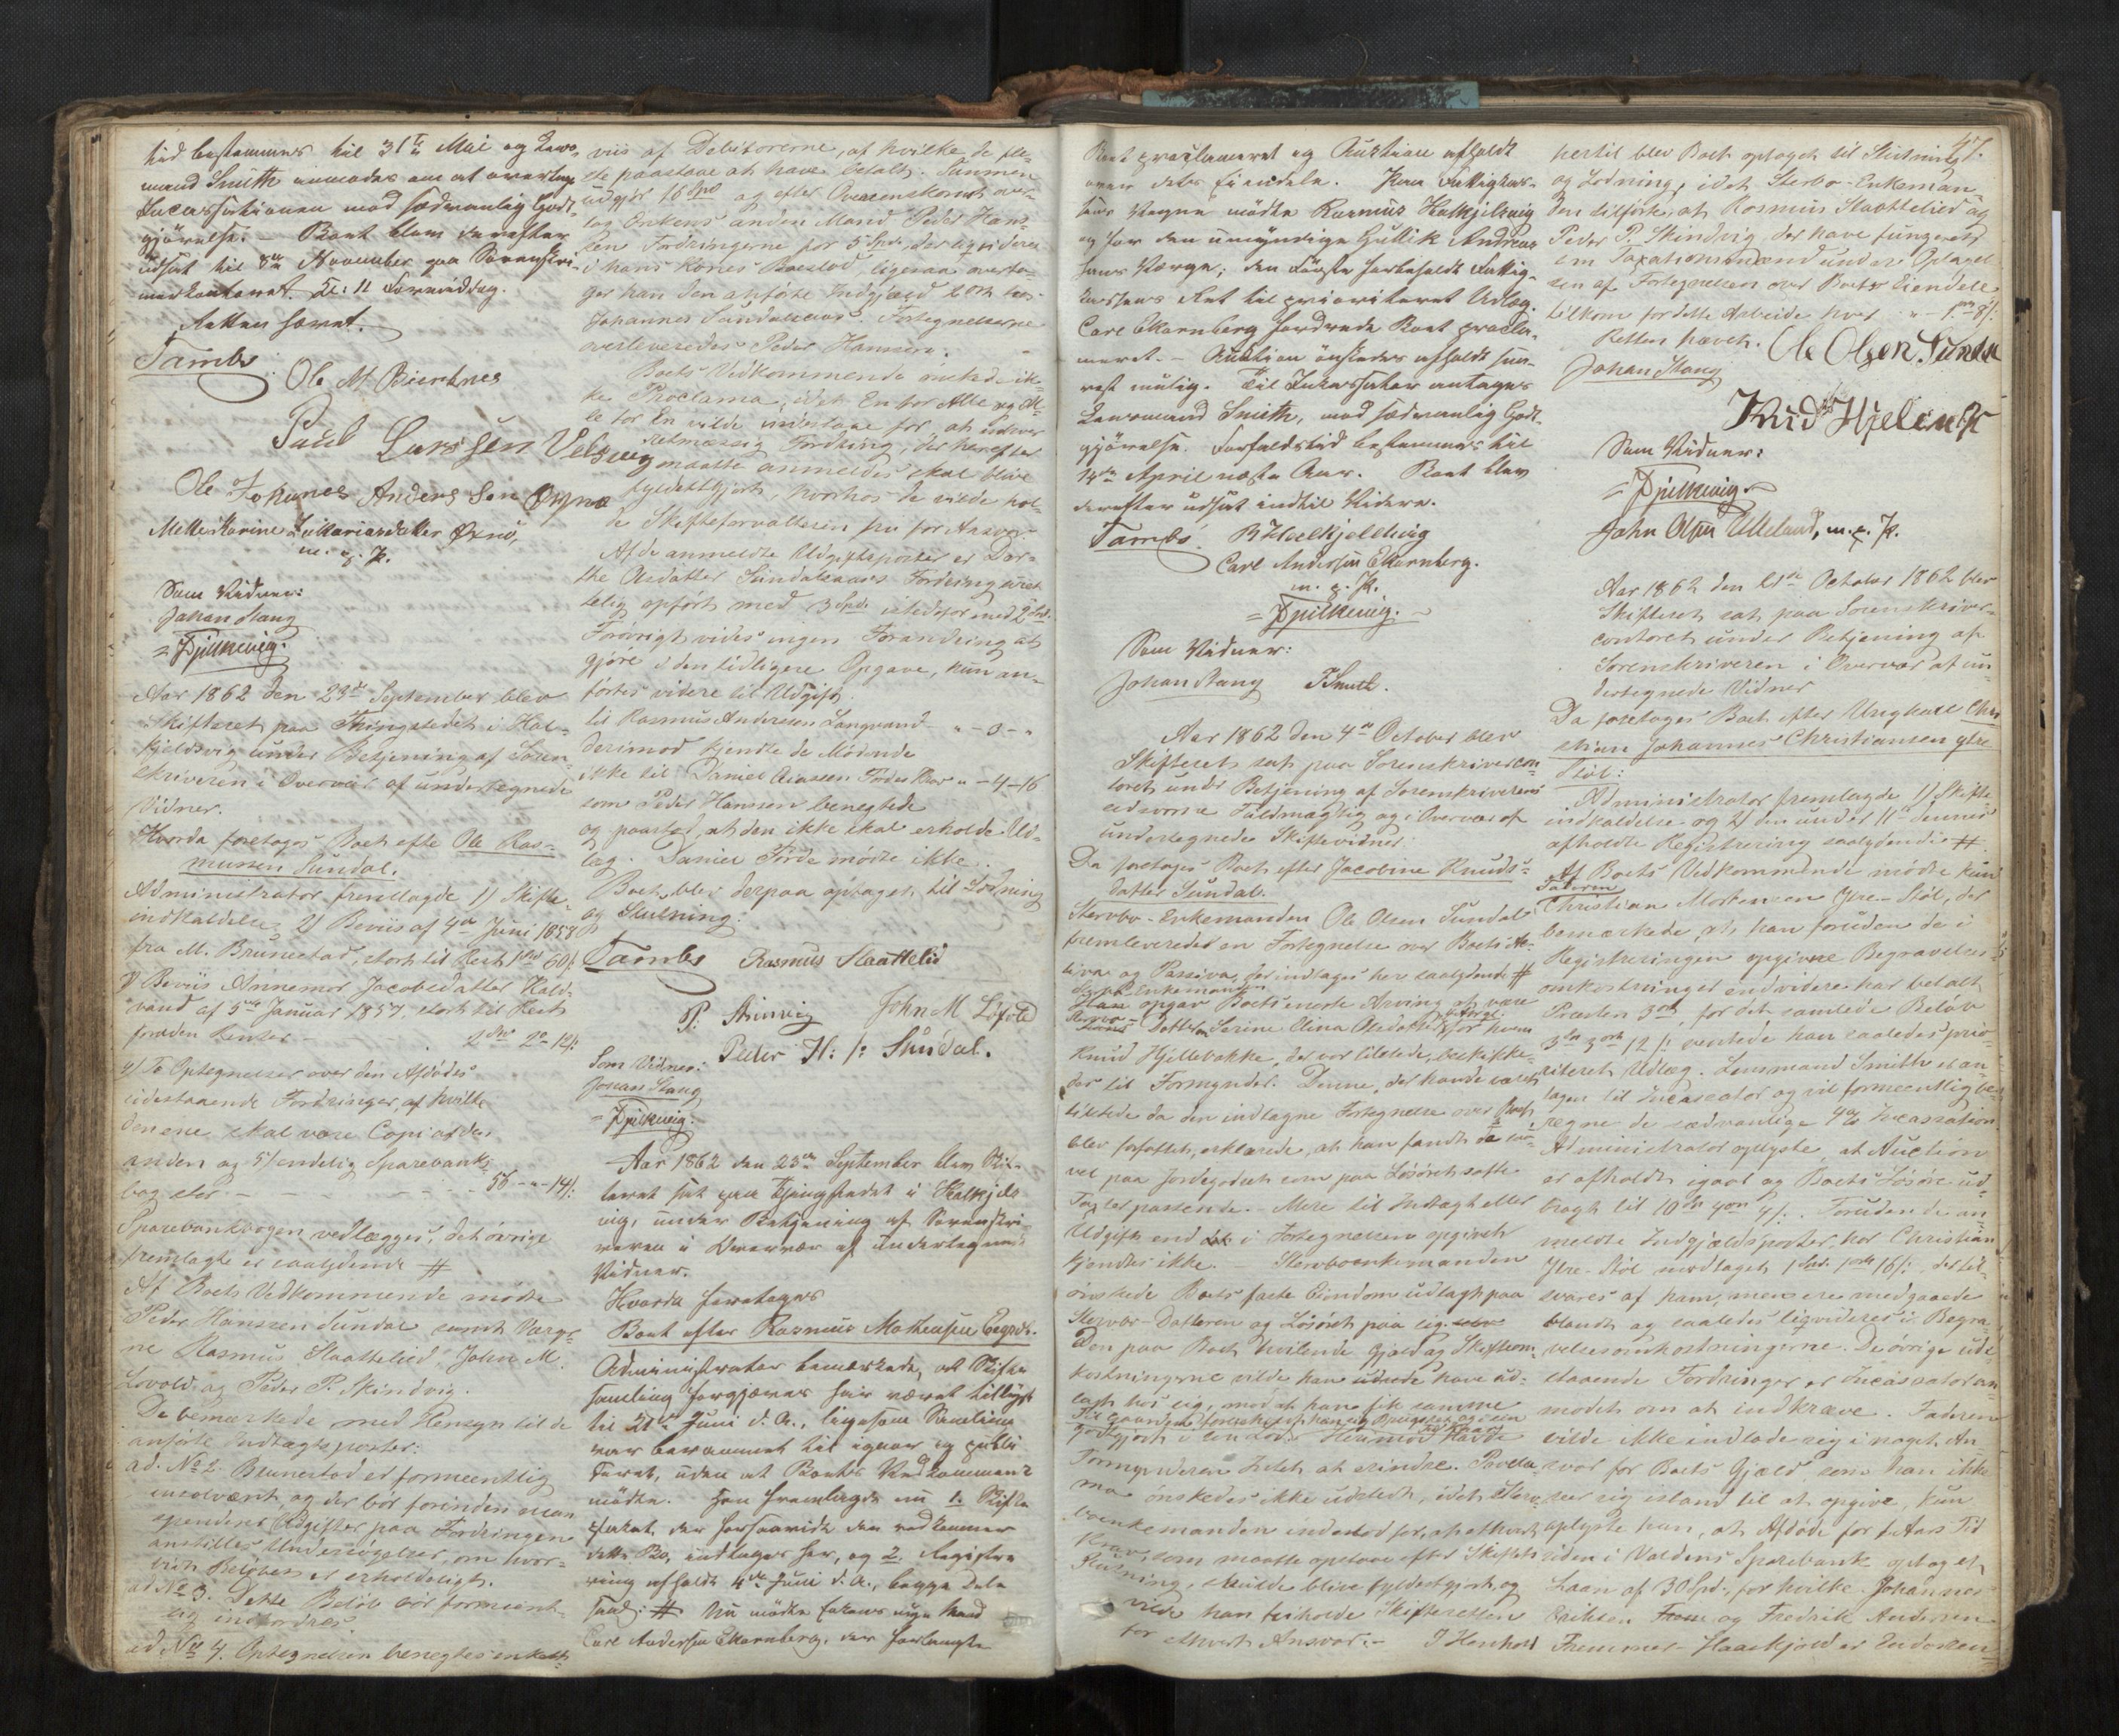 tid bestemmes til 31te Mai og Lens-
mand Smith anmodes om at overtage
Incassationen mod sædvanlig Godt-
gjørelse. – Boet blev derefter
udsat til 8de November paa Sorenskri-
verkontoret Kl: 11 Formiddag.
Retten hævet.
Tambs
Ole M Birchnes
Paul Larssen
Ole Johanes Anders Sen
Mette Marine Zakkariasdatter
m. p. P.
Som Vidner:
Johan Stang
Aar 1862 den 23de September blev
Skifteret paa Thingstedet i Hal-
kjelsvig under Betjening af Soren-
skriveren i Overvær af undertegnede
Vidner.
Hvorda foretages Boet efter Ole Ras-
mussen Sundal.
Administrator fremlagde 1) Skifte-
indkaldelse, 2) Beviis af 4de Juni 1858
fra M. Brunestad, stort til Rest 1 Spd 60 s:
3) Beviis Annemor Jacobsdatter Kald-
vand af 5te Januar 1857, stort til Rest
foruden Renter – – 2 Spd 2 – 12 s:
4) To Optegnelser over den Afdødes
udestaaende Fordringer, af hvilke
den ene skal være Copi af den
anden og 5) endelig Sparebank-
bog stor – – – – 56 – " – 14 s:
Sparebankbogen vedlægges, det øvrige
fremlagte er saalydende #
Af Boets Vedkommende mødte
Peder Hanssen Sundal samt Værge-
ne Rasmus Slaattelied, John M.
Lovold og Peder P. Skindvig.
De bemærkede med Hensyn til de
anførte Indtægtsposter:
ad. No 2. Brunestad er formeentlig
insolvent, og der bør forinden man
spenderer Udgifter paa Fordringen
anstilles Undersøgelser, om hvor-
vidt Beløbet er erholdeligt.
ad No 3. Dette Beløb bør formeent-
lig indfordres.
ad No 4. Optegnelsen benegtes enkelt-
viis af Debitorerne, af hvilke de fle-
ste paastaae at have betalt. Summen
udgjør 16 Spd og efter Overenskomst over-
tog Enkens anden Mand Peder Hans-
sen Fordringerne for 5 Spd, der liqvideres
i hans Kones Boeslod, ligesaa overta-
ger han den anførte Indgjæld 2 ort hos
Johannes Sundalsaas. Fortegnelserne
overleveredes Peder Hanssen.
Boets Vedkommende ønskede ik-
ke Proclama, idet En for Alle og Al-
le for En vilde indestaae for at enhver
retmæssig Fordring, der herefter
maatte anmeldes skal blive
fyldestgjort, hvorhos de vilde hol-
de Skifteforvalteren fri for Ansvar.
Af de anmeldte Udgiftsposter er Dor-
the Olsdatter Sundalsaas's Fordring uret-
telig opført med 3 Spd istedetfor med 2 Spd.
Forøvrigt vides ingen Forandring at
gjøre i den tidligere Opgave, kun an-
førtes videre til Udgift
til Rasmus Andersen Langvand " – 3 – "
derimod kjendte de Mødende
ikke til Daniel Aiassen Fördes Krav " – 4 – 16
som Peder Hanssen benegtede
og paastod, at den ikke skal erholde Ud-
læg. Daniel Förde mødte ikke.
Boet blev derpaa optaget til Lodning
og Slutning.
Tambs Rasmus Slaattelid
P. Skinvig John M Lövold
Peder H: S: Sundal.
Som Vidner:
Johan Stang
Aar 1862 den 23de September blev Skif-
teret sat paa Thingstedet i Halkjels-
vig, under Betjening af Sorenskri-
veren i Overvær af undertegnede
Vidner.
Hvorda foretages
Boet efter Rasmus Mathiassen
Administrator bemærkede, at Skifte-
samling forgjæves har været tillyst
til 21de Juni d. A., ligesom Samling
var berammet til igaar og publi-
ceret, uden at Boets Vedkommende
mødte. Han fremlagde nu 1. Skifte-
placat, der forsaavidt den vedkommer
dette Bo, indtages her, og 2. Registre-
ring afholdt 4de Juni d. A., begge Dele
saal: # Nu mødte Enkens nye Mand
Carl Andersen Ekornberg, der forlangte
47.
Boet proclameret og Auktion afholdt
over dets Eiendele. Paa Fattigkas-
sens Vegne mødte Rasmus Halkjelsvig
og for den umyndige Gullik Andreas
hans Værge; den Første forbeholdt Fattig-
kassens Ret til prioriteret Udlæg.
Carl Ekornberg fordrede Boet procla-
meret. – Auktion ønskedes afholdt sna-
rest mulig. Til Inkassator antages
Lensmand Smith, mod sædvanlig Godt-
gjørelse. Forfaldstid bestemmes til
14de April næste Aar. Boet blev
derefter udsat indtil Videre.
Tambs. R Halkjelsvig
Carl Andersen Ekornberg.
m. p. P.
Som Vidner:
Johan Stang Smith.
Aar 1862 den 4de October blev
Skifteret sat paa Sorenskrivercon-
toret under Betjening af Sorenskriverens
edsvorne Fuldmægtig og i Overvær af
undertegnede Skiftevidner.
Da foretages Boet efter Jacobine Knuds-
datter Sundal.
Stervbo-Enkemanden Ole Olsen Sundal
fremleverede en Fortegnelse over Boets Ac-
tiva og Passiva, der indtages her saalydende #
Stervbo-Enkemanden
Han opgav Boets eneste Arving at være
Datteren Serine Olina Olsdatter, for hvem
Knud Hjellebakke, der var tilstede, beskikke-
des til Formynder. Denne, der havde været
tilstede da den indtagne Fortegnelse over Boet
blev forfattet, erklærede, at han fandt de saa-
vel paa Jordegodset som paa Løsøret satte
Taxter passende. Mere til Indtægt eller
Udgift end i Fortegnelsen opgivet
kjendtes ikke. – Stervboenkemanden
ønskede Boets faste Eiendom udlagt paa
Stervbo-Datteren og Løsøret paa sig.
Den paa Boet hvilende Gjæld og Skifteom-
kostningerne vilde han udrede have ud-
lagt hos sig, mod at han fik samme
godtgjort i Herimod havde
Formynderen Intet at erindre. Procla-
ma ønskedes ikke udstedt, idet Sterv-
boenkemanden indestod for, at ethvert
Krav, som maatte opstaae efter Skiftets
Slutning, skulde blive fyldestgjort, og
vilde han friholde Skifteretten
for ethvert Ansvar. – I Henhold
hertil blev Boet optaget til Slutning
og Lodning, idet Stervbo-Enkeman-
den tilføiede, at Rasmus Slaattelied og
Peder P. Skindvig, der have fungeret
som Taxationsmænd under Optagel-
sen af Fortegnelsen over Boets Eiendele
tilkom for dette Arbeide hver " – 1 – 8 s:
Retten hævet. Ole Olsen Sundal
Johan Stang
Knud Hjelebak
Som Vidner:
John Olsen Ulleland, m. p. P.
Aar 1862 den 21de October 1862 blev
Skifteret sat paa Sorenskriver-
contoret under Betjening af
Sorenskriveren i Overvær af un-
dertegnede Vidner
Da foretages Boet efter Ungkarl Chri-
stian Johannes Christiansen ytre
Støl:
Administrator fremlagde 1) Skifte-
indkaldelse og 2) den under 11te dennes
afholdte Registrering saalydende #
Af Boets Vedkommende mødte kun
Faderen
Christian Mortensen Ytre-Støl, der
bemærkede, at han foruden de i
Registreringen opgivne Begravelses-
omkostninger endvidere har betalt
Præsten 3 ort, for det samlede Beløb
3 Spd 3 ort 12 s: ventede han saaledes prio-
riteret Udlæg. Lensmand Smith er an-
tagen til Incassator og vil formeentlig be-
regne de sædvanlige 4 % Incassation.
Administrator oplyste, at Auction
er afholdt igaar og Boets Løsøre ud-
bragt til 10 Spd 4 ort 4 s. Foruden de an-
meldte Indgjældsposter har Christian
Ytre-Støl modtaget 1 Spd. 1 ort 16 s:, der til-
svares af ham, men ere medgaaede
blandt og saaledes liqvideres i Begra-
velsesomkostningerne. De øvrige ude-
staaende Fordringer er Incassator an-
modet om at indkræve. Faderen
vilde ikke indlade sig i noget An-
svar for Boets Gjæld, som han ikke
seer sig istand til at opgive, kun
oplyste han, at Afdøde for 1 Aars Tid
siden i Voldens Sparebank optog et
Laan af 30 Spd., for hvilke Johannes
Eriksen og Fredrik Andersen
Fremmer-Haaskjold er Endossen-